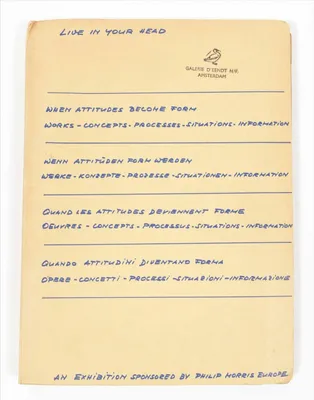 LIVE IN YOUR HEAD
GALERIE D'EENDT N.V.
AMSTERDAM
WHEN ATTITUDES BECOME FORM
WORKS - CONCEPTS - PROCESSES - SITUATIONS - INFORMATION
WENN ATTITÜDEN FORM WERDEN
WERKE - KONZEPTE - PROZESSE - SITUATIONEN - INFORMATION
QUAND LES ATTITUDES DEVIENNENT FORME
OEUVRES - CONCEPTS - PROCESSUS - SITUATIONS - INFORMATION
QUANDO ATTITUDINI DIVENTANO FORMA
OPERE - CONCETTI - PROCESSI - SITUAZIONI - INFORMAZIONE
AN EXHIBITION SPONSORED BY PHILIP MORRIS EUROPE